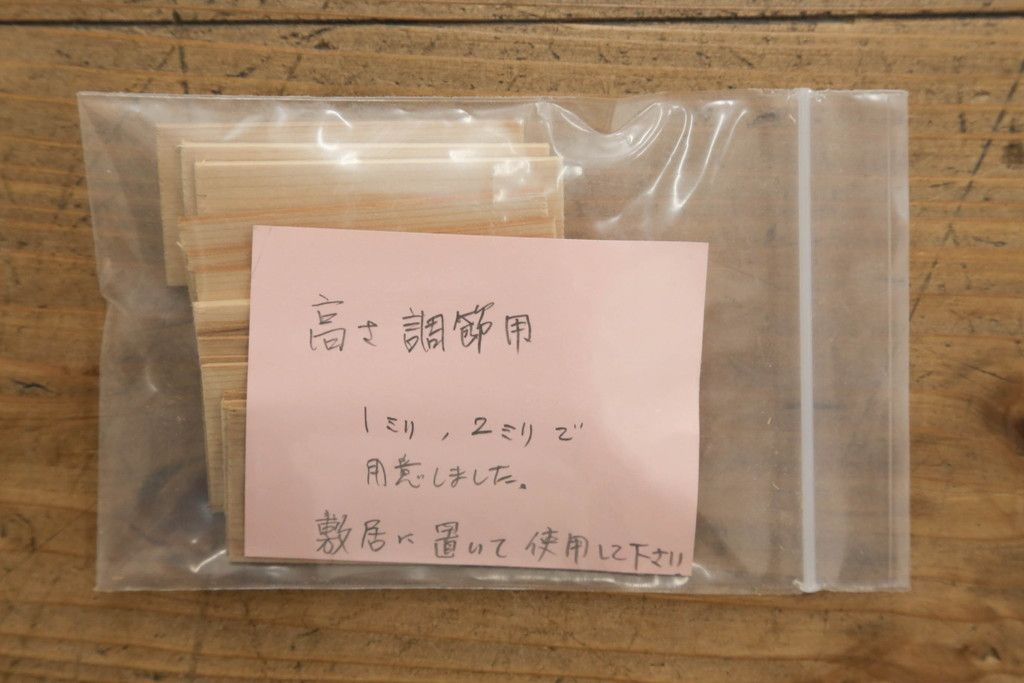 高さ調節用
1ミリ，2ミリで
用意しました。
敷居に置いて使用して下さい